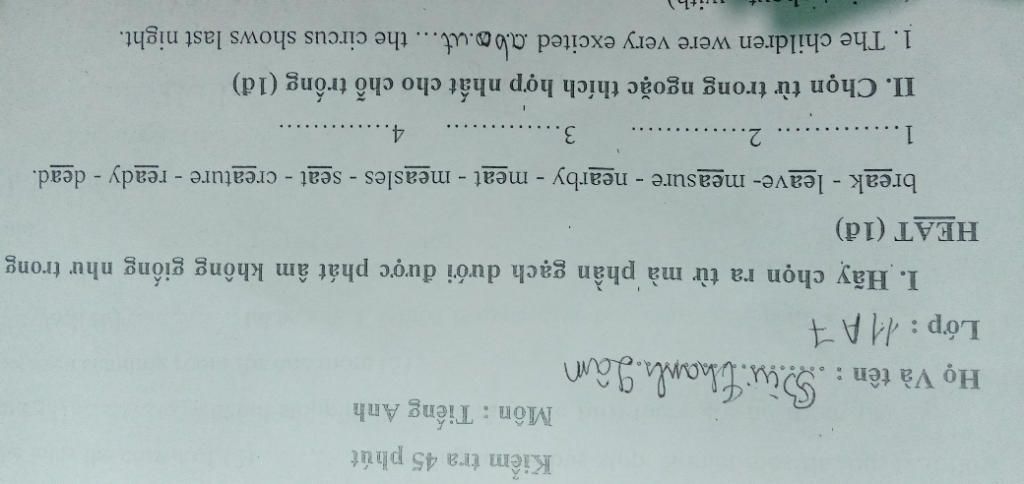 Kiểm tra 45 phút
Môn : Tiếng Anh
Họ Và tên : Bùi Thanh Lâm
Lớp : 11A7
I. Hãy chọn ra từ mà phần gạch dưới được phát âm không giống như trong
HEAT (1đ)
break - leave- measure - nearby - meat - measles - seat - creature - ready - dead.
1.............. 2.............. 3.............. 4..............
II. Chọn từ trong ngoặc thích hợp nhất cho chỗ trống (1đ)
1. The children were very excited about... the circus shows last night.